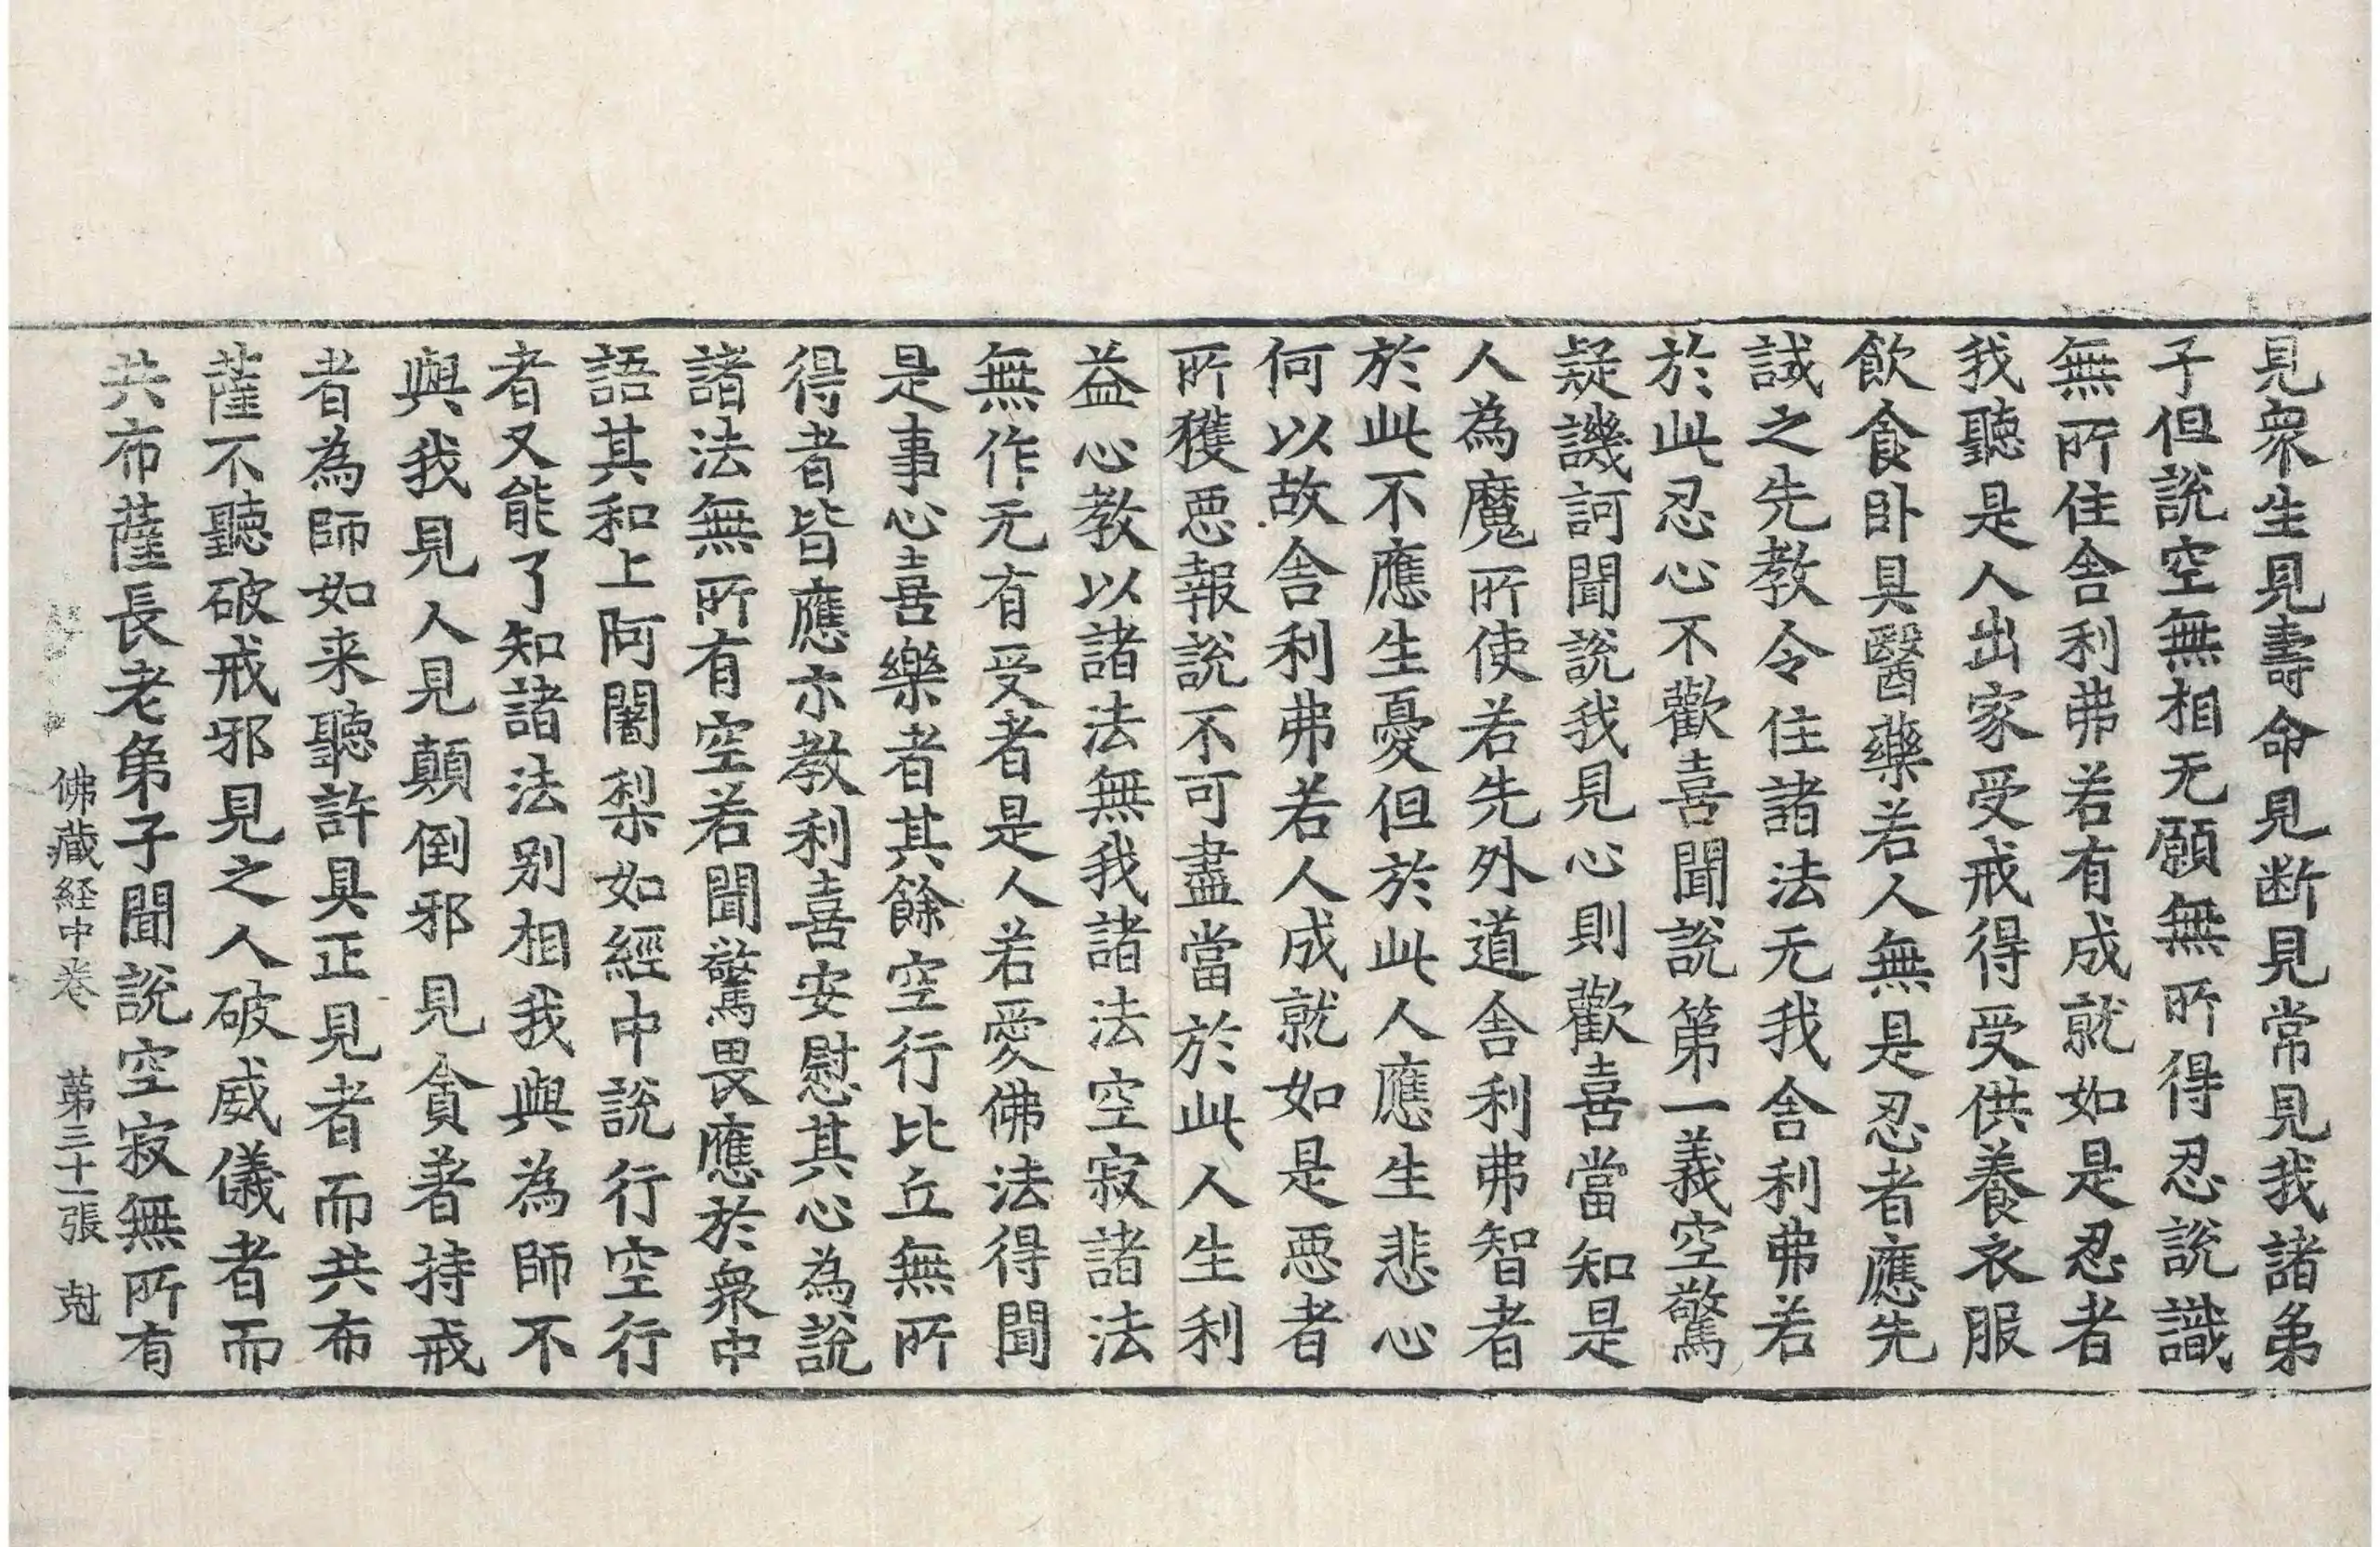 見衆生見壽命見断見常見我諸弟
子但說空無相无願無所得忍說識
無所住舎利弗若有成就如是忍者
我聽是人出家受戒得受供養衣服
飲食卧具醫藥若人無是忍者應先
誡之先教令住諸法无我舎利弗若
於此忍心不歡喜聞說第一義空驚
疑譏訶聞說我見心則歡喜當知是
人為魔所使若先外道舎利弗智者
於此不應生憂但於此人應生悲心
何以故舎利弗若人成就如是恶者
所獲恶報說不可盡當於此人生利
益心教以諸法無我諸法空寂諸法
無作无有受者是人若愛佛法得聞
是事心喜樂者其餘空行比丘無所
得者皆應示教利喜安慰其心為說
諸法無所有空若聞驚畏應於衆中
語其和上阿闍梨如經中說行空行
者又能了知諸法别相我與為師不
與我見人見顛倒邪見貪著持戒
者為師如来聽許具正見者而共布
薩不聽破戒邪見之人破威儀者而
共布薩長老弟子聞說空寂無所有
佛藏経中卷 第三十一張 尅